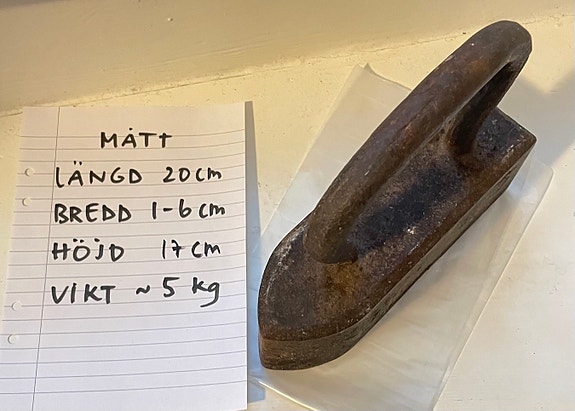 MÅTT
LÄNGD 20 cm
BREDD 1-6 cm
HÖJD 17 cm
VIKT ~ 5 kg